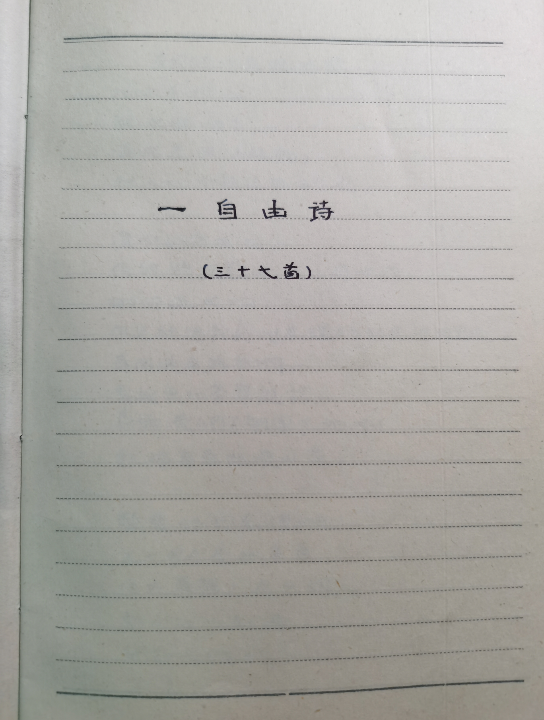 一 自由诗
(三十七首)